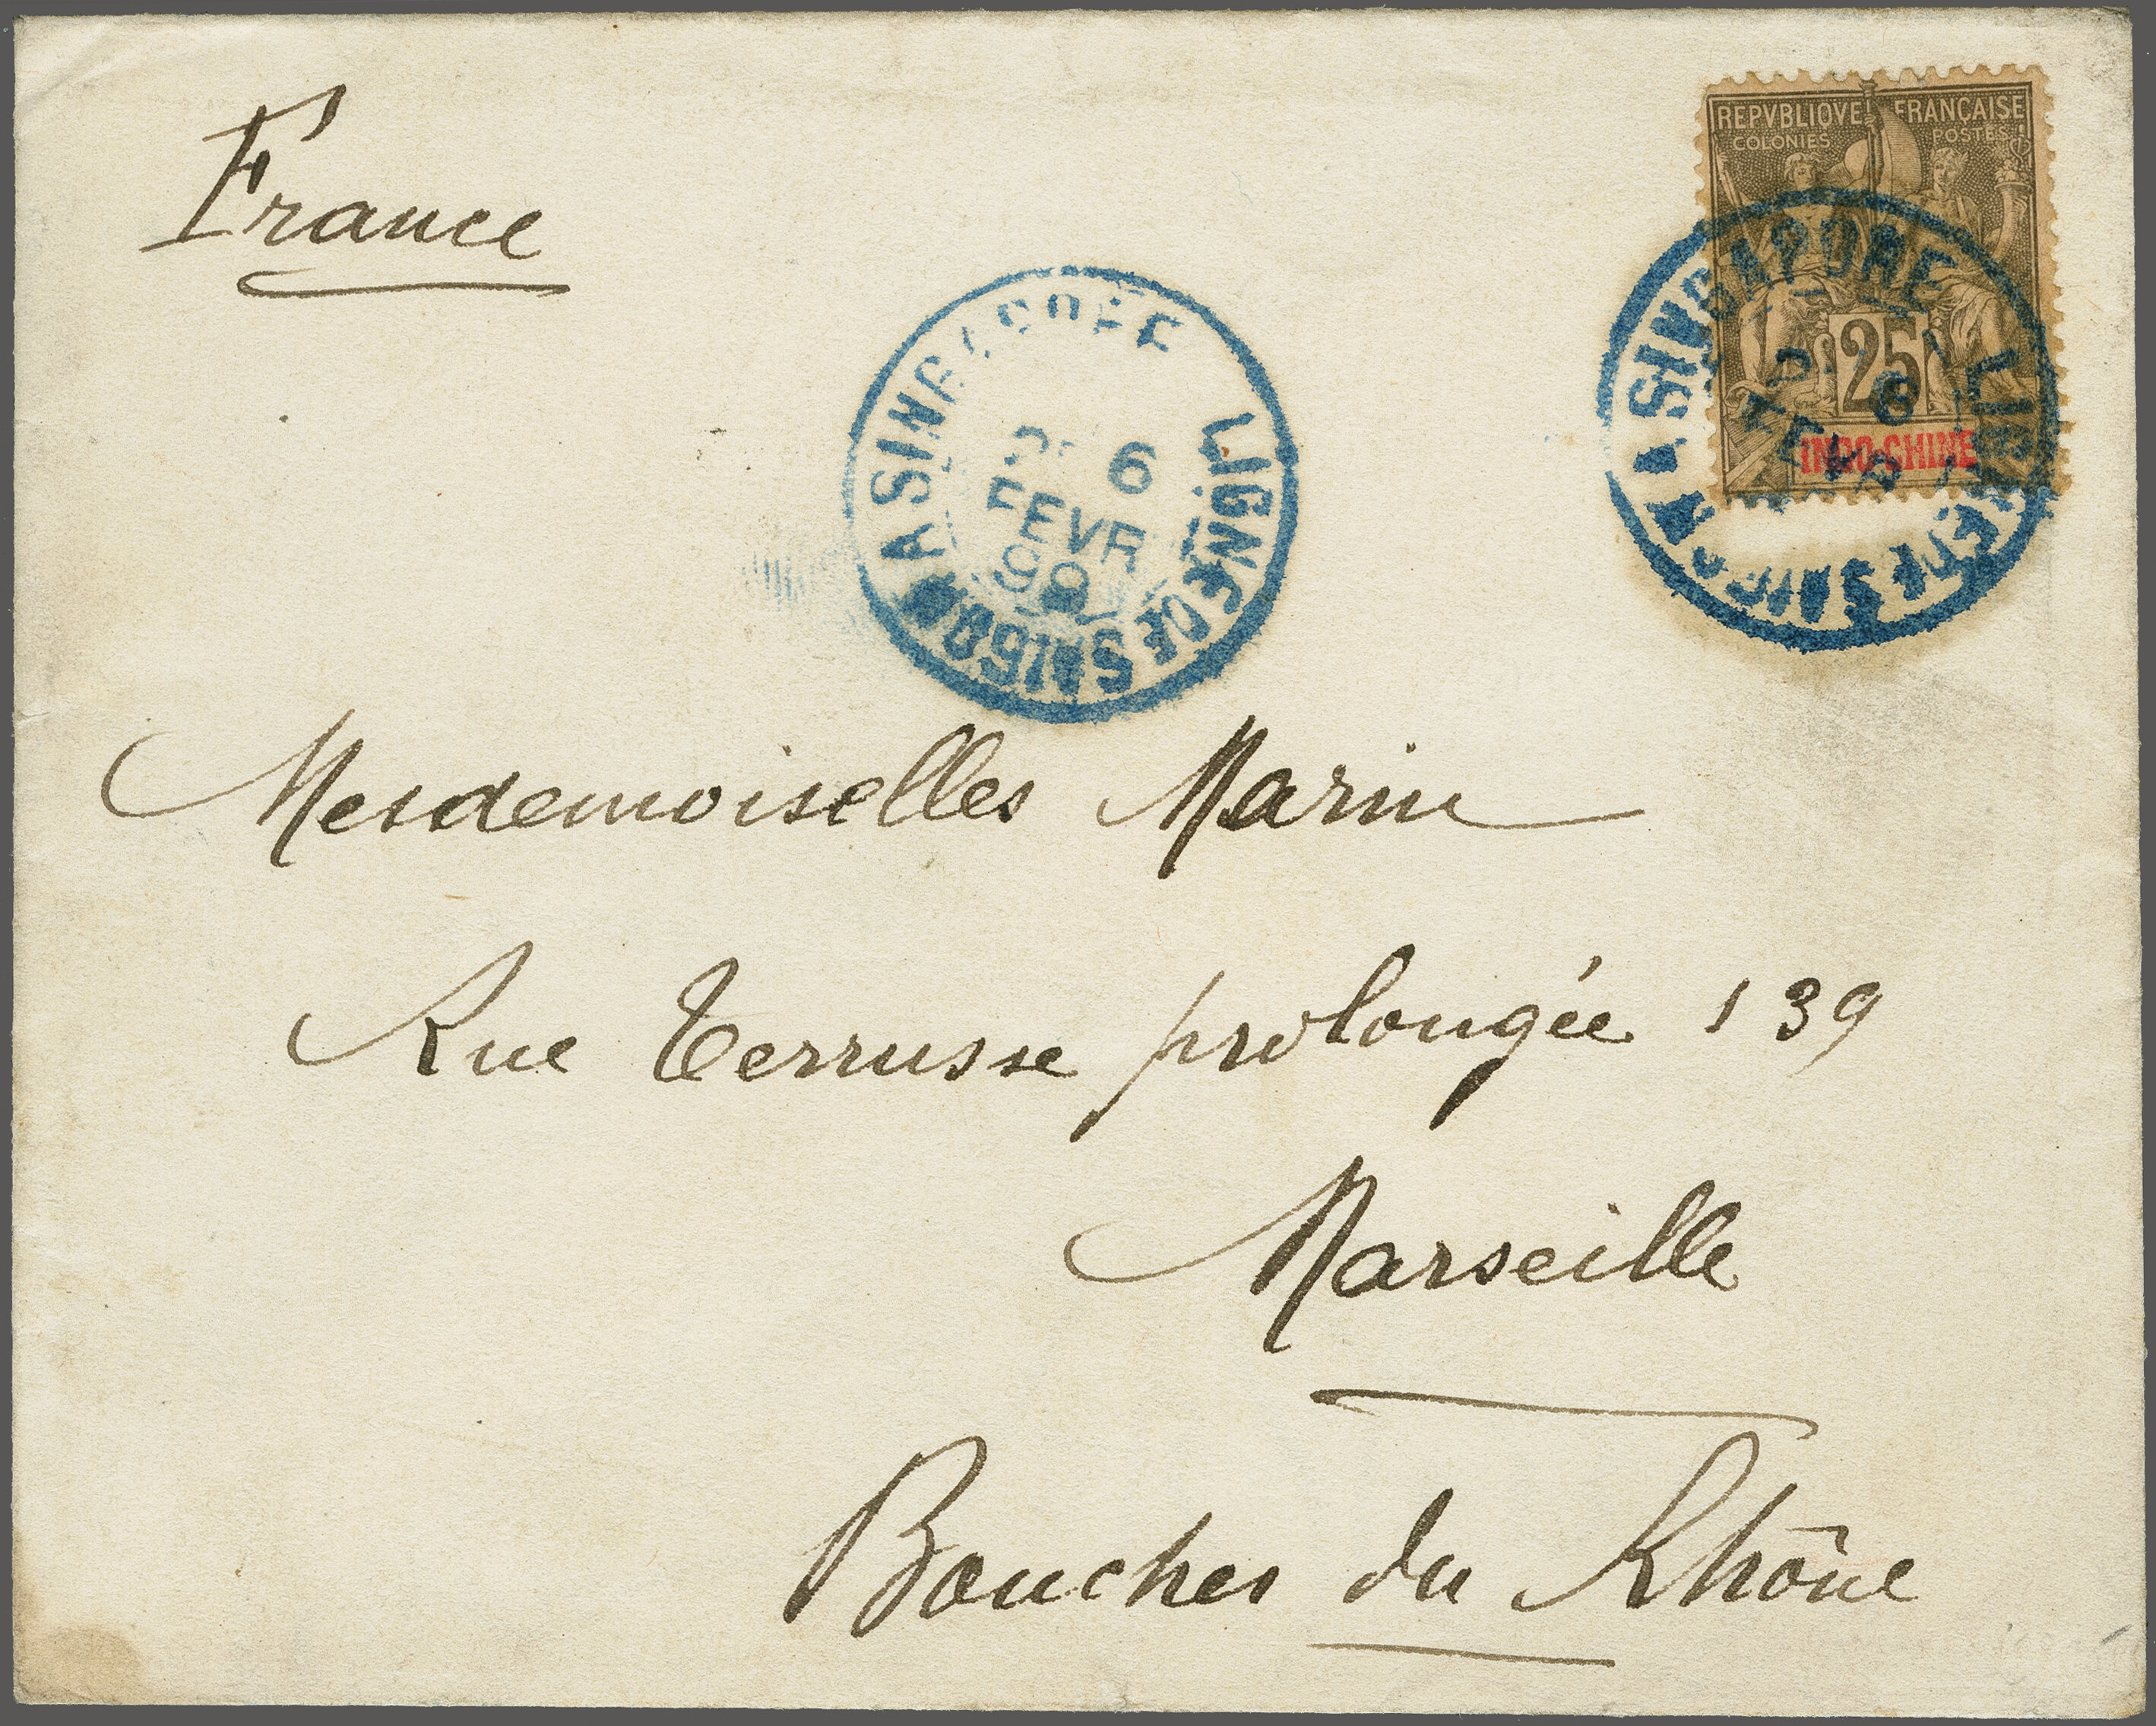 France
REPVBLIQVE FRANÇAISE
COLONIES POSTES
25
INDO-CHINE
SINGAPORE LIGNE DE SAIGON A
6
FEVR
LIGNE DE SAIGON A SINGAPORE
6
FEVR
Mesdemoiselles Marin
Rue Terrusse prolongée 139
Marseille
Bouches du Rhône